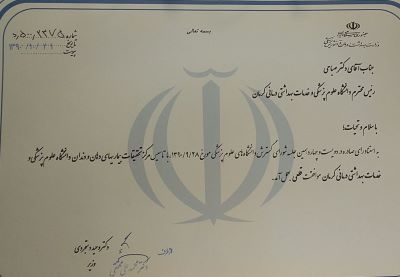 بسمه تعالی
شماره ۵۰۰/۲۳۷۵د
تاریخ
پیوست
جناب آقای دکتر صباحی
رئیس محترم دانشگاه علوم پزشکی و خدمات بهداشتی درمانی کرمان
با سلام و تحیات؛
به استناد رای صادره دویست و چهاردهمین جلسه شورای گسترش دانشگاه‌های علوم پزشکی مورخ ۱۳۹۰/۹/۲۸ با تاسیس مرکز تحقیقات بیماریهای دهان و دندان دانشگاه علوم پزشکی و
خدمات بهداشتی درمانی کرمان موافقت قطعی بعمل آمد.
دکتر وحید دستجردی
وزیر